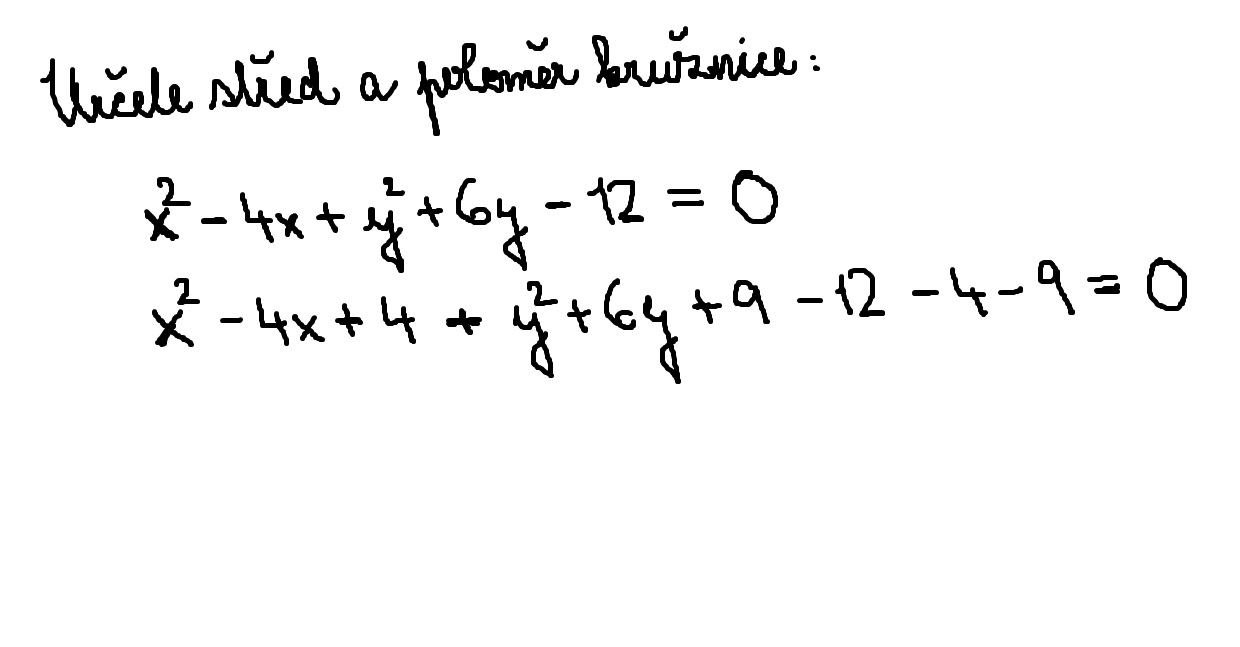 Určete střed a poloměr kružnice:
x² - 4x + y² + 6y - 12 = 0
x² - 4x + 4 + y² + 6y + 9 - 12 - 4 - 9 = 0